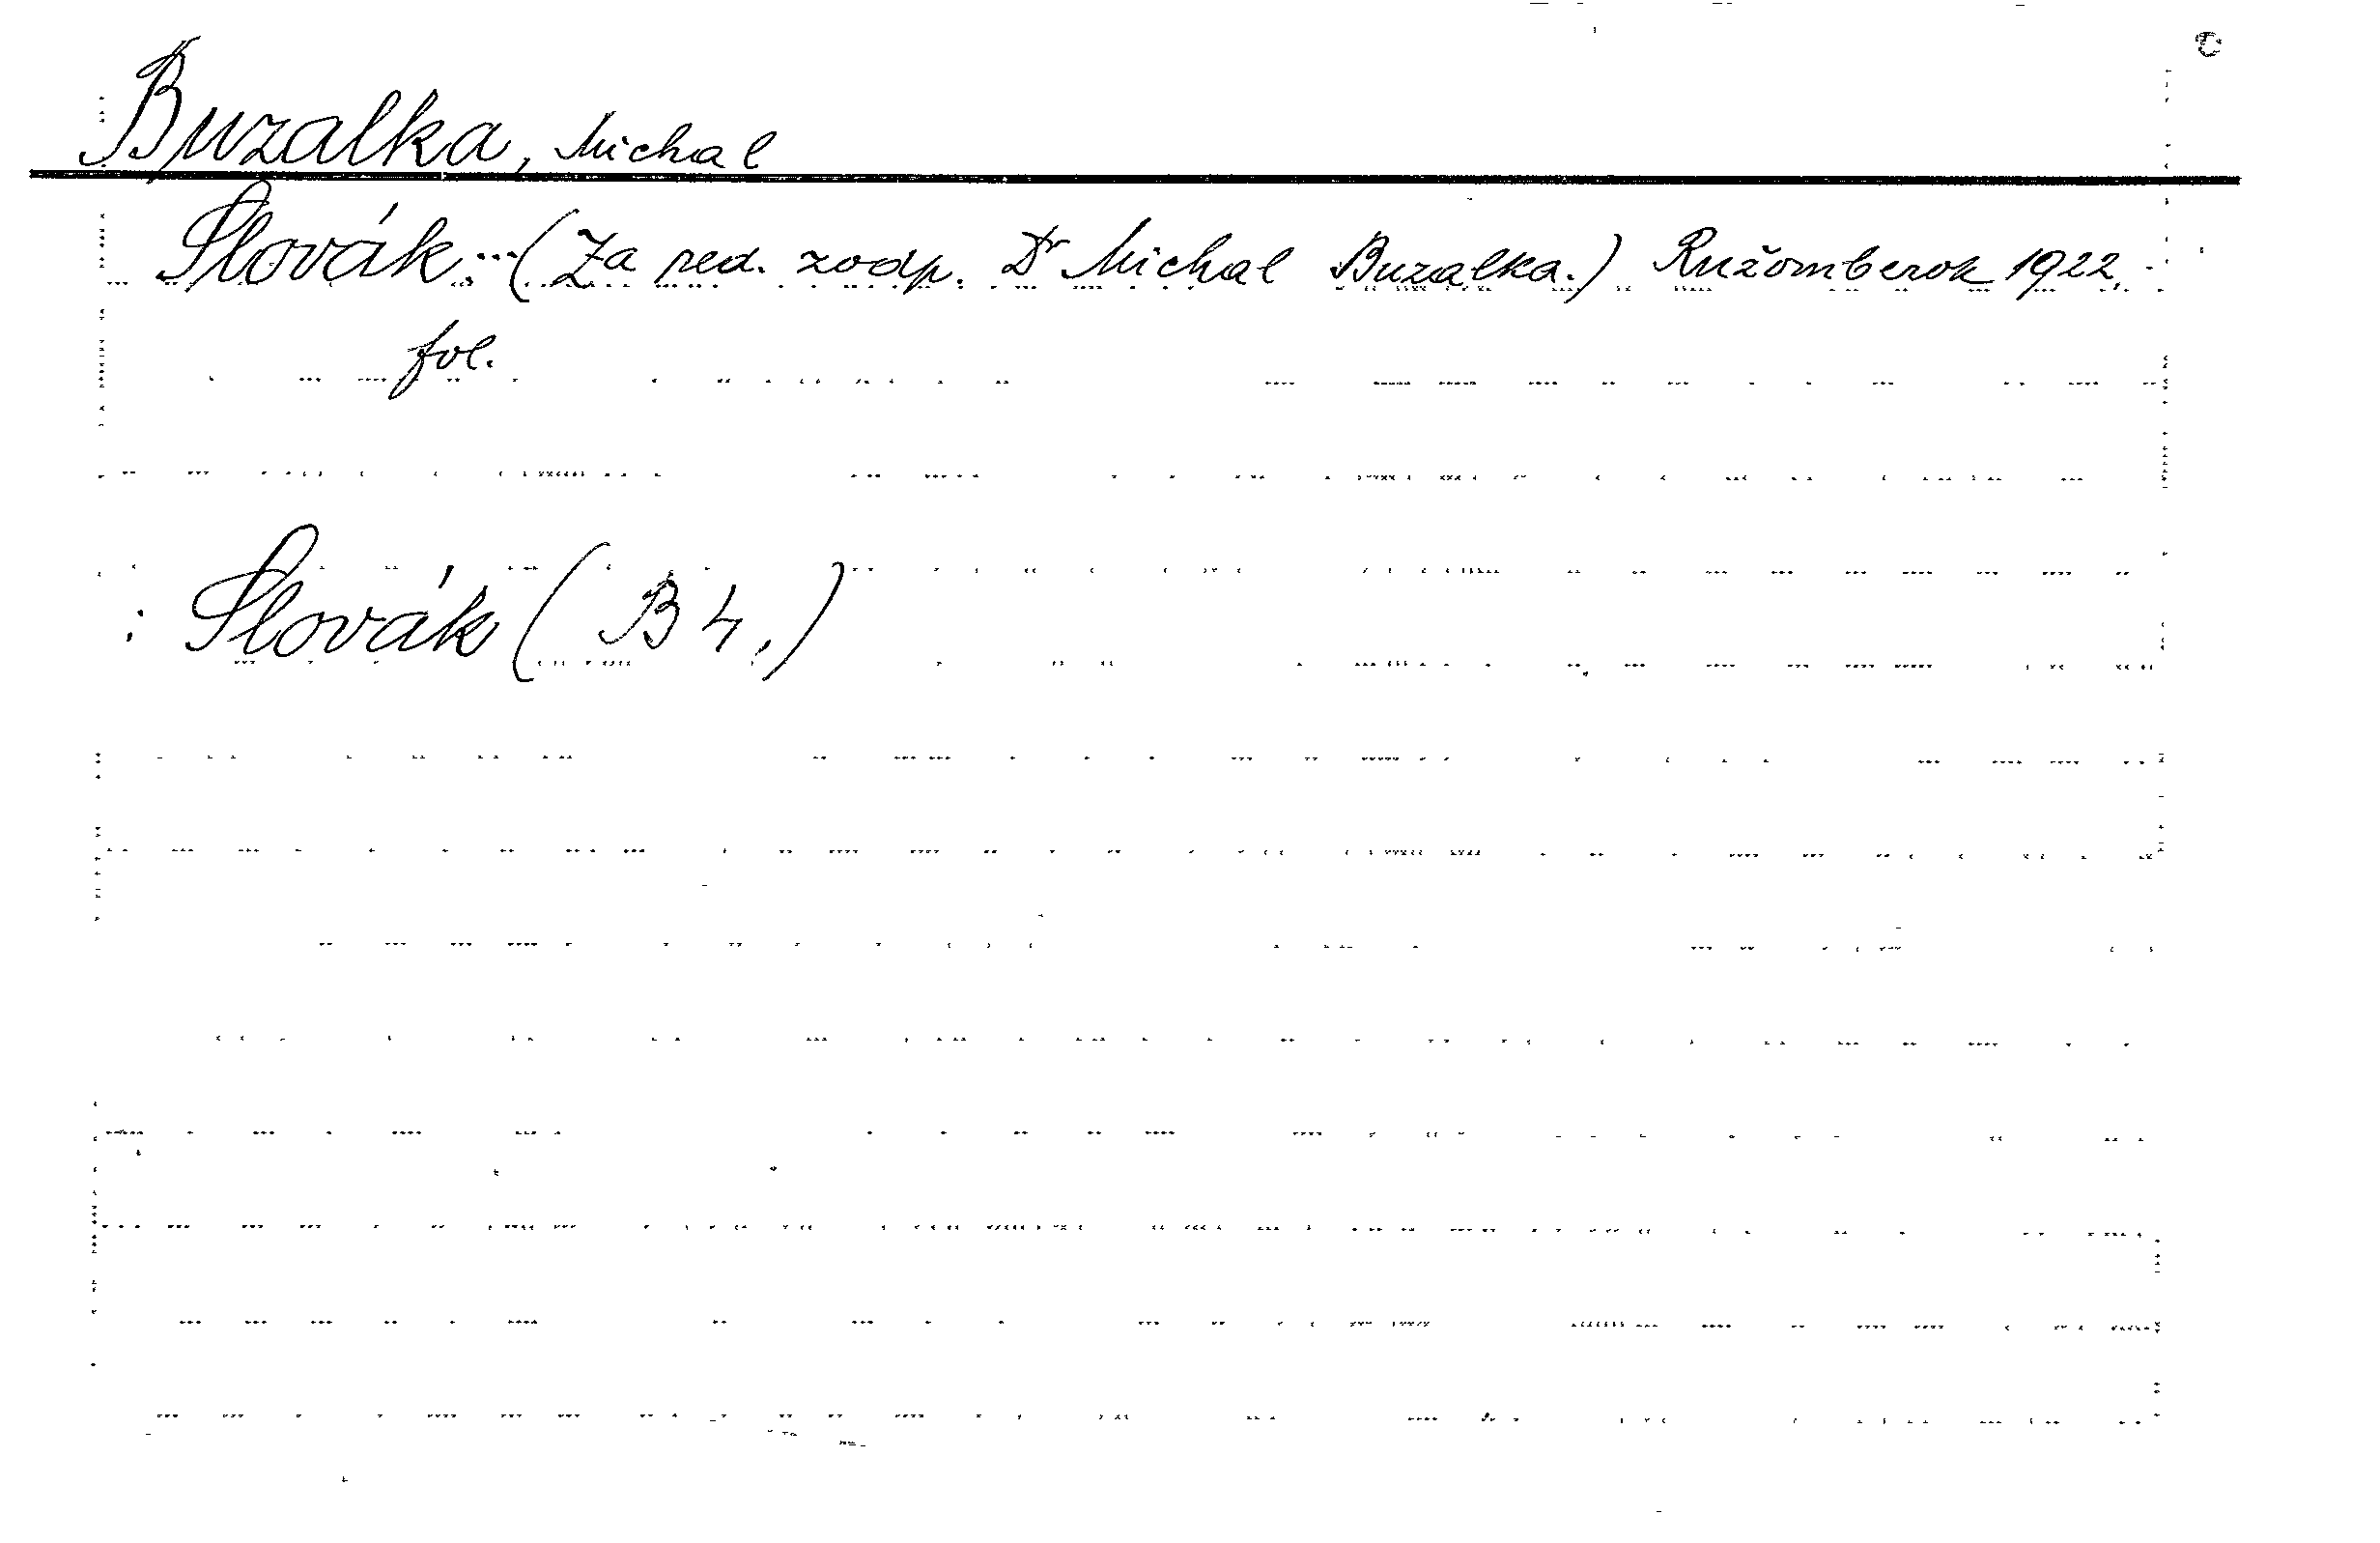 Buzalka, Michal
Slovák... (Za red. zodp. Dr Michal Buzalka.) Ružomberok 1922.
fol.
Slovák (B 4.)